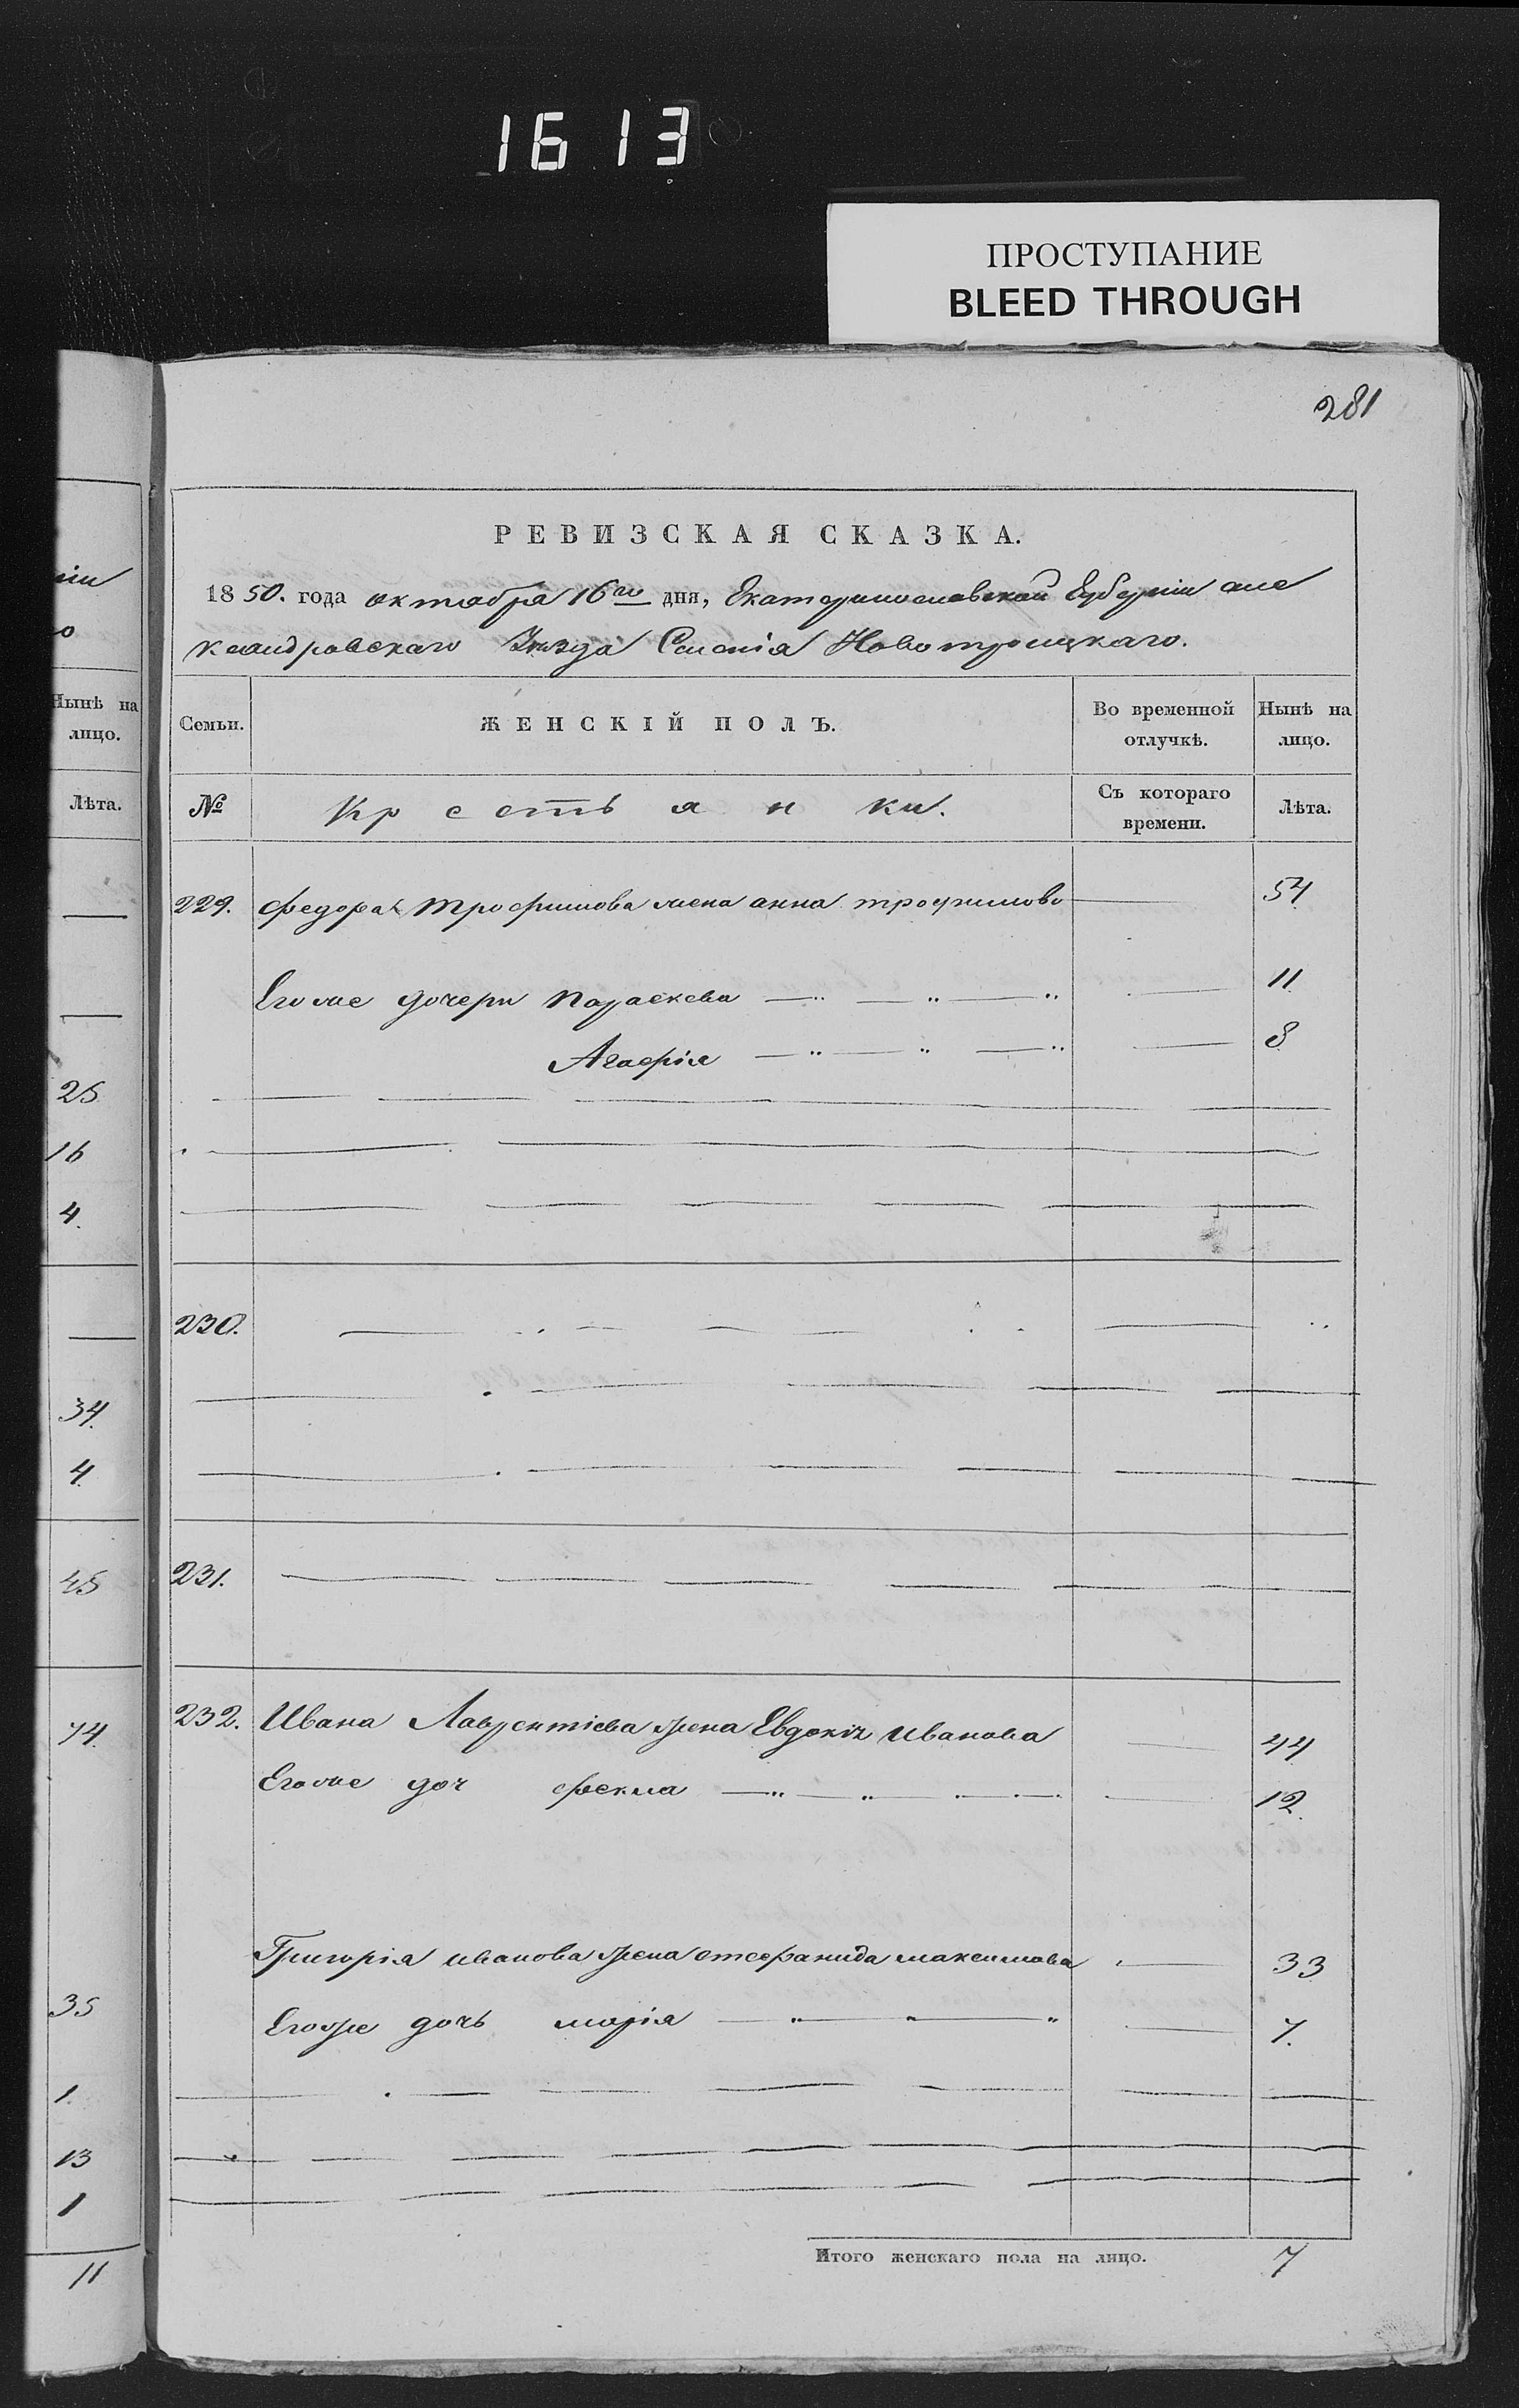 1613
ПРОСТУПАНИЕ
BLEED THROUGH
281
РЕВИЗСКАЯ СКАЗКА.
1850. года октября 16го дня, Екатеринославской Губернiи але
ксандровскаго Уѣзда Селенiя Новотроицкаго.
Семьи.
ЖЕНСКІЙ ПОЛЪ.
Во временной отлучкѣ.
Нынѣ на лицо.
№
Крестьянки.
Съ котораго времени.
Лѣта.
229. Федора Трофимова жена анна трофимова — 54
Егоже дочери Параскева — " — " — " — 11
Агафiя — " — " — " — 8
230.
231.
232. Ивана Лаврентiева жена Евдокiя Иванова — 44
Егоже доч фекла — " — " — 12.
Григорiя иванова жена стефанида максимова — 33
Егоже дочь марiя — " — " — " — 7.
Итого женскаго пола на лицо. 7
нiи
о
Нынѣ на
лицо.
Лѣта.
25
16
4.
34.
4.
45
74.
35
1.
13
1
11